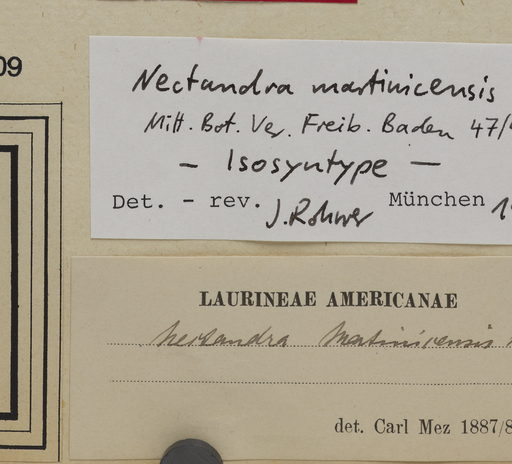 09
Nectandra martinicensis
Mitt. Bot. Ver. Freib. Baden 47/
- Isosyntype -
Det. - rev. J. Rohwer München 1
LAURINEAE AMERICANAE
Nectandra Martinicensis
det. Carl Mez 1887/8